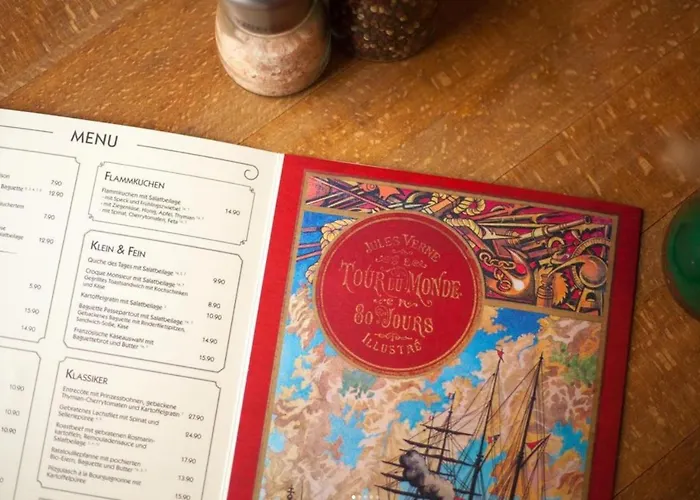 MENU
7.90
12.90
7.90
12.90
5.90
14.90
10.90
10.90
10.90
FLAMMKUCHEN
Flammkuchen mit Salatbeilage
- mit Speck und Frühlingszwiebel
- mit Ziegenkäse, Honig, Apfel, Thymian
- mit Spinat, Cherrytomaten, Feta
14.90
KLEIN & FEIN
Quiche des Tages mit Salatbeilage
9.90
Croque Monsieur mit Salatbeilage
Gegrilltes Toastsandwich mit Kochschinken
und Käse
8.90
Kartoffelgratin mit Salatbeilage
10.90
Baguette Passepartout mit Salatbeilage
Gebackenes Baguette mit Rinderfiletspitzen,
Sandwich-Soße, Käse
14.90
Französische Käseauswahl mit
Baguettebrot und Butter
15.90
KLASSIKER
Entrecôte mit Prinzessbohnen, gebackene
Thymian-Cherrytomaten und Kartoffelgratin
27.90
Gebratenes Lachsfilet mit Spinat und
Selleriepüree
24.90
Roastbeef mit gebratenen Rosmarin-
kartoffeln, Remouladensauce und
Salatbeilage
17.90
Ratatouillepfanne mit pochiertem
Bio-Eiern, Baguette und Butter
13.90
Pilzgulasch à la Bourguignonne mit
Kartoffelpüree
15.90
JULES VERNE
TOUR DU MONDE
EN
80 JOURS
ILLUSTRÉ